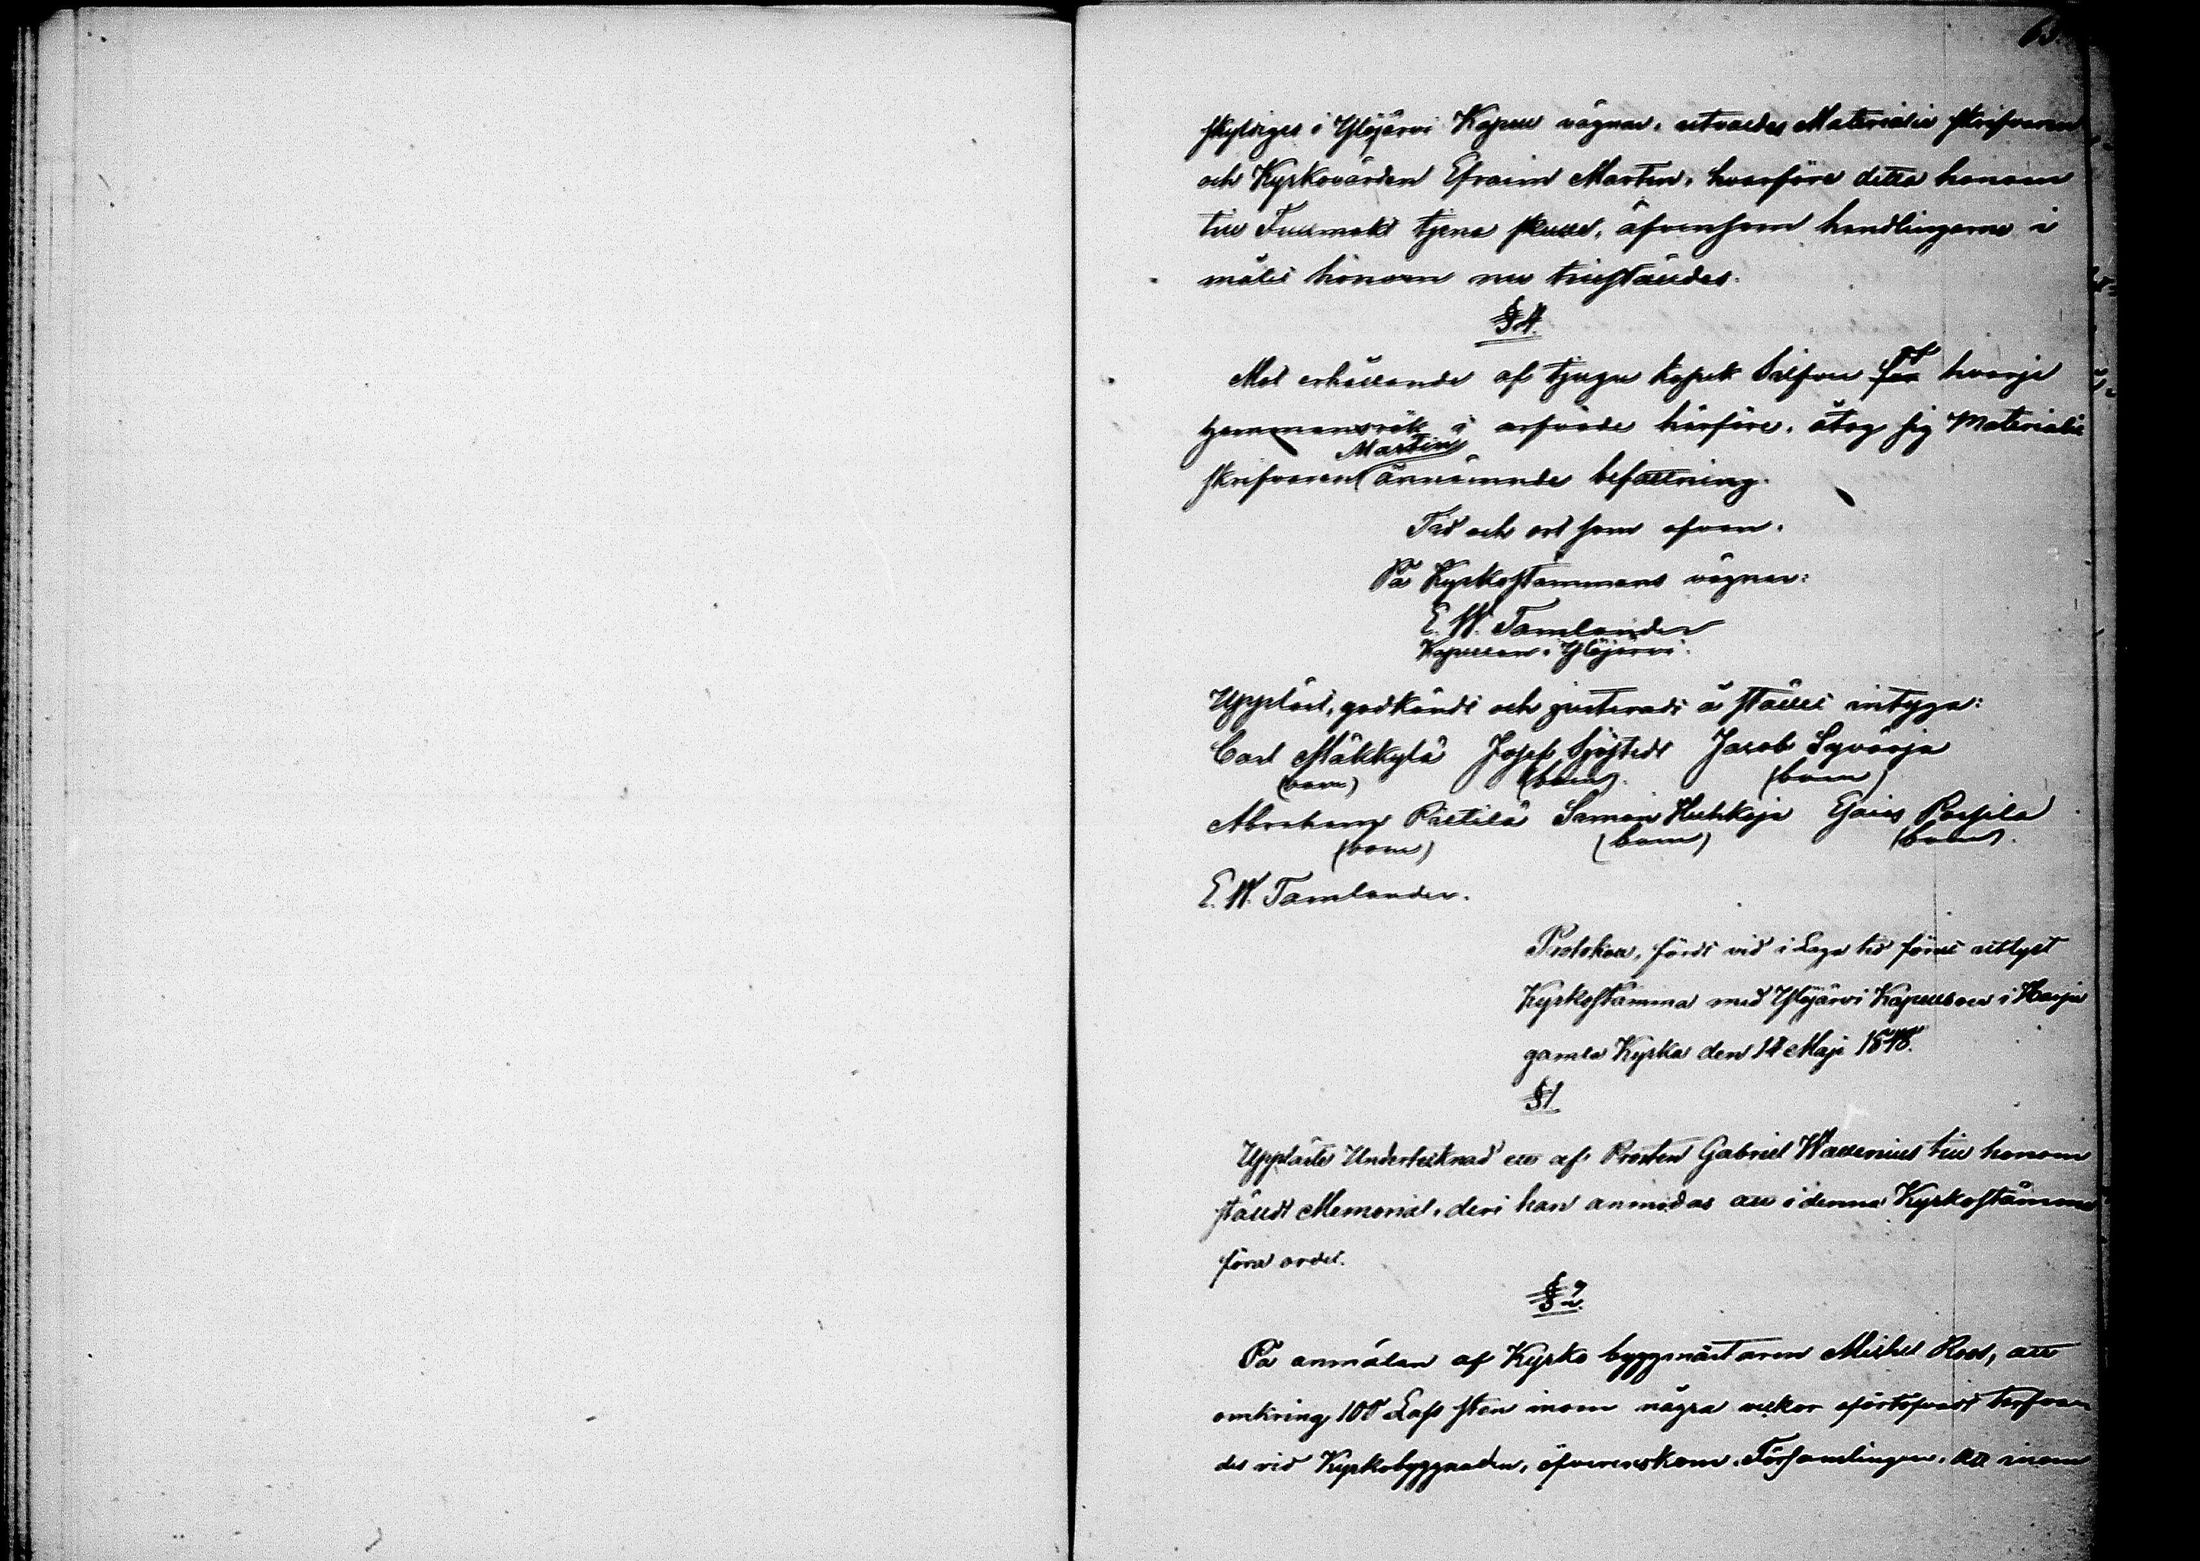 63.
skyldiges i Ylöjärvi Kapell vägnar, utvaldes Materialie skrifvaren
och Kyrkovärden Efraim Martin, hvarföre detta honom
till Fullmakt tjena skulle, äfvensom handlingarne i
målet honom nu tillställdes.
§ 4.
Mot erhållande af tjugu kopek Silfver för hvarje
hemmansrök i arfvode härföre, åtog sig Materialie
skrifvaren Martin ännämnde befattning.
Tid och ort som ofvan.
På Kyrkostämmans vägnar:
E. W. Tamlander
Kapellan i Ylöjärvi.
Uppläst, godkändt och justeradt å stället intyga:
Carl Mäkkylä Josef Sjöstedt Jacob Syvärja
(bom) (bom). (bom)
Abraham Pältilä Samon Huhkoja Gais Passila
(bom) (bom) (bom).
E. W. Tamlander.
Protokoll, fördt vid i Laga tid förut utlyst
Kyrkostämma med Ylöjärvi Kapellboer i Harju
gamla Kyrka den 14 Maji 1848.
§ 1.
Uppläste Undertecknad ett af Prosten Gabriel Wallenius till honom
ställdt Memorial, deri han anmodas att i denna Kyrkostämma
föra ordet.
§ 2.
På anmälan af Kyrko byggmästaren Michel Roos, att
omkring 100 Lass sten inom några veckor oförtöfvadt behöfvan
des vid Kyrkobyggnaden, öfverenskom Församlingen, att inom